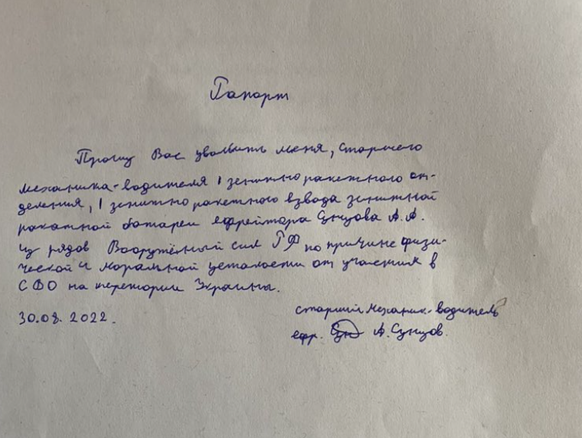 Рапорт
Прошу Вас уволить меня, старшего
механика-водителя 1 зенитно ракетного от-
деления, 1 зенитно ракетного взвода зенитной
ракетной батареи ефрейтора Сунцова А.А.
из рядов Вооружённый сил РФ по причине физи-
ческой и моральной усталости от участия в
СВО на теретории Украины.
30.08.2022.
старший механик-водитель
ефр. А.Сунцов.